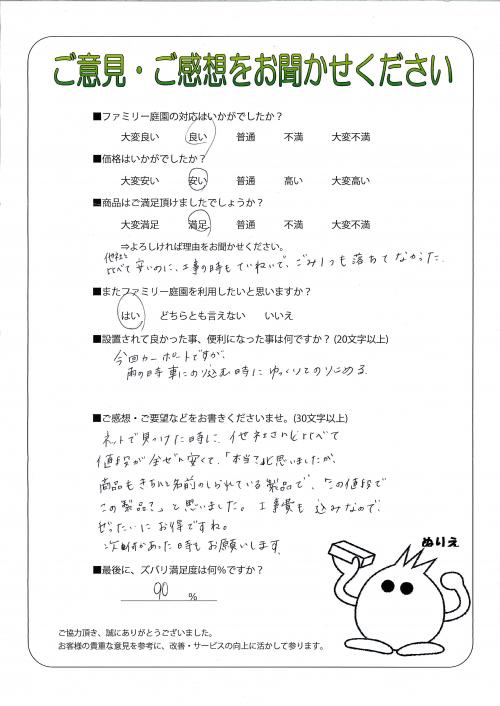 ご意見・ご感想をお聞かせください
■ファミリー庭園の対応はいかがでしたか？
大変良い 良い 普通 不満 大変不満
■価格はいかがでしたか？
大変安い 安い 普通 高い 大変高い
■商品はご満足頂けましたでしょうか？
大変満足 満足 普通 不満 大変不満
⇒よろしければ理由をお聞かせください。
他社と
比べて安いのに、工事の時もていねいで、ごみ1つも落ちてなかった.
■またファミリー庭園を利用したいと思いますか？
はい どちらとも言えない いいえ
■設置されて良かった事、便利になった事は何ですか？(20文字以上)
今回カーポートですが、
雨の時車にのり込む時にゆっくりてのりこめる.
■ご感想・ご要望などをお書きくださいませ。(30文字以上)
ネットで見つけた時に、他社さんと比べて
値段が全ぜん安くて、「本当？」と思いましたが、
商品もきちんと名前のしられている製品で、「この値段で
この製品？」と思いました。工事費も込みなので、
ぜったいにお得ですね。
次回があった時もお願いします
■最後に、ズバリ満足度は何％ですか？
90 %
ぬりえ
ご協力頂き、誠にありがとうございました。
お客様の貴重な意見を参考に、改善・サービスの向上に活かして参ります。